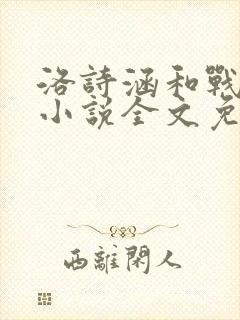 洛詩涵和戰
小說全文免
西離閑人